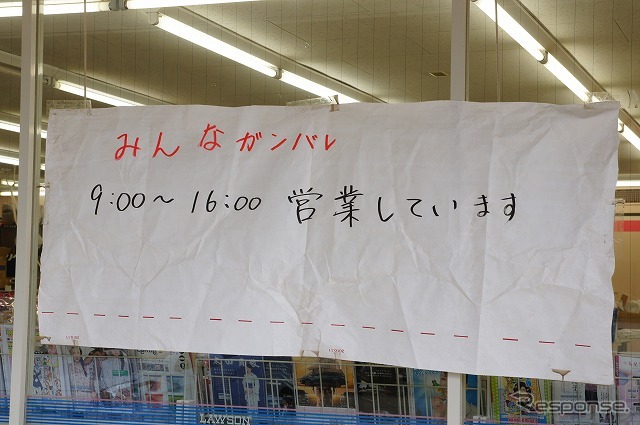 みんなガンバレ
9:00～16:00 営業しています
LAWSON
Response.